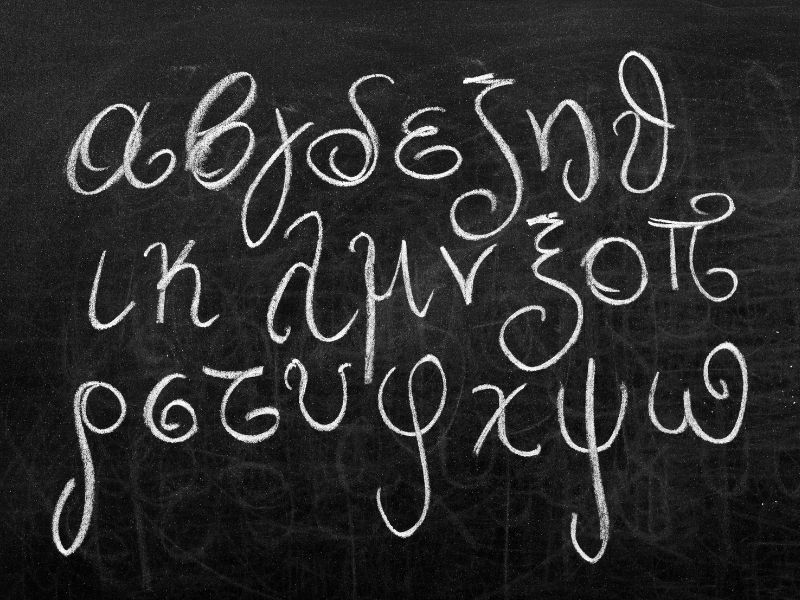 αβγδεζηθ
ικλμνξοπ
ρστυφχψω